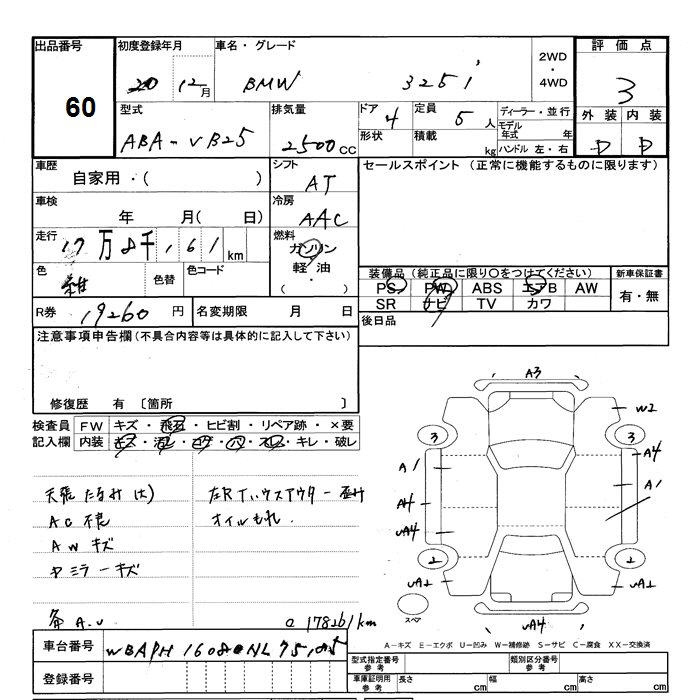 出品番号 初度登録年月 車名・グレード 2WD・4WD 評価点
60 20 12月 BMW 325i 3
型式 排気量 ドア 4 定員 5人 ディーラー・並行 外装 内装
ABA-VB25 2500cc 形状 積載 kg モデル年式 年 ハンドル 左・右 D D
車歴 シフト セールスポイント (正常に機能するものに限ります)
自家用・( ) AT
車検 冷房
年 月( 日) AAC
走行 燃料
17万8千,161km ガソリン
色 色替 色コード 軽油 装備品(純正品に限り○をつけてください) 新車保証書
( ・ ) PS PW ABS エアB AW 有・無
R券 19260円 名変期限 月 日 SR ナビ TV カワ
注意事項申告欄(不具合内容等は具体的に記入して下さい) 後日品
修復歴 有 〔箇所 〕
検査員 FW キズ・飛石・ヒビ割・リペア跡・×要
記入欄 内装 キズ・汚レ・コゲ・穴・スレ・キレ・破レ
天張たるみ(大) 左Rインナー
AC不良 オイルもれ.
AWキズ
ドミラーキズ
178261km
A3
W2
3 3
A1 A4
A4 A1
UA4
2 2
UA2 UA2
スペア UA4
A-キズ E-エクボ U-凹み W-補修跡 S-サビ C-腐食 XX-交換済
車台番号 WBAPH16080NL75105 型式指定番号 参考 類別区分番号 参考
登録番号 車庫証明用 参考 長さ cm 幅 cm 高さ cm